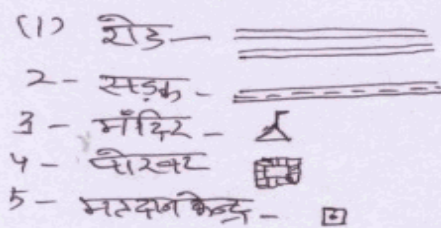 (1) रोड —
2 - सड़क -
3 - मंदिर -
4 - पोखर
5 - मतदान केन्द्र -